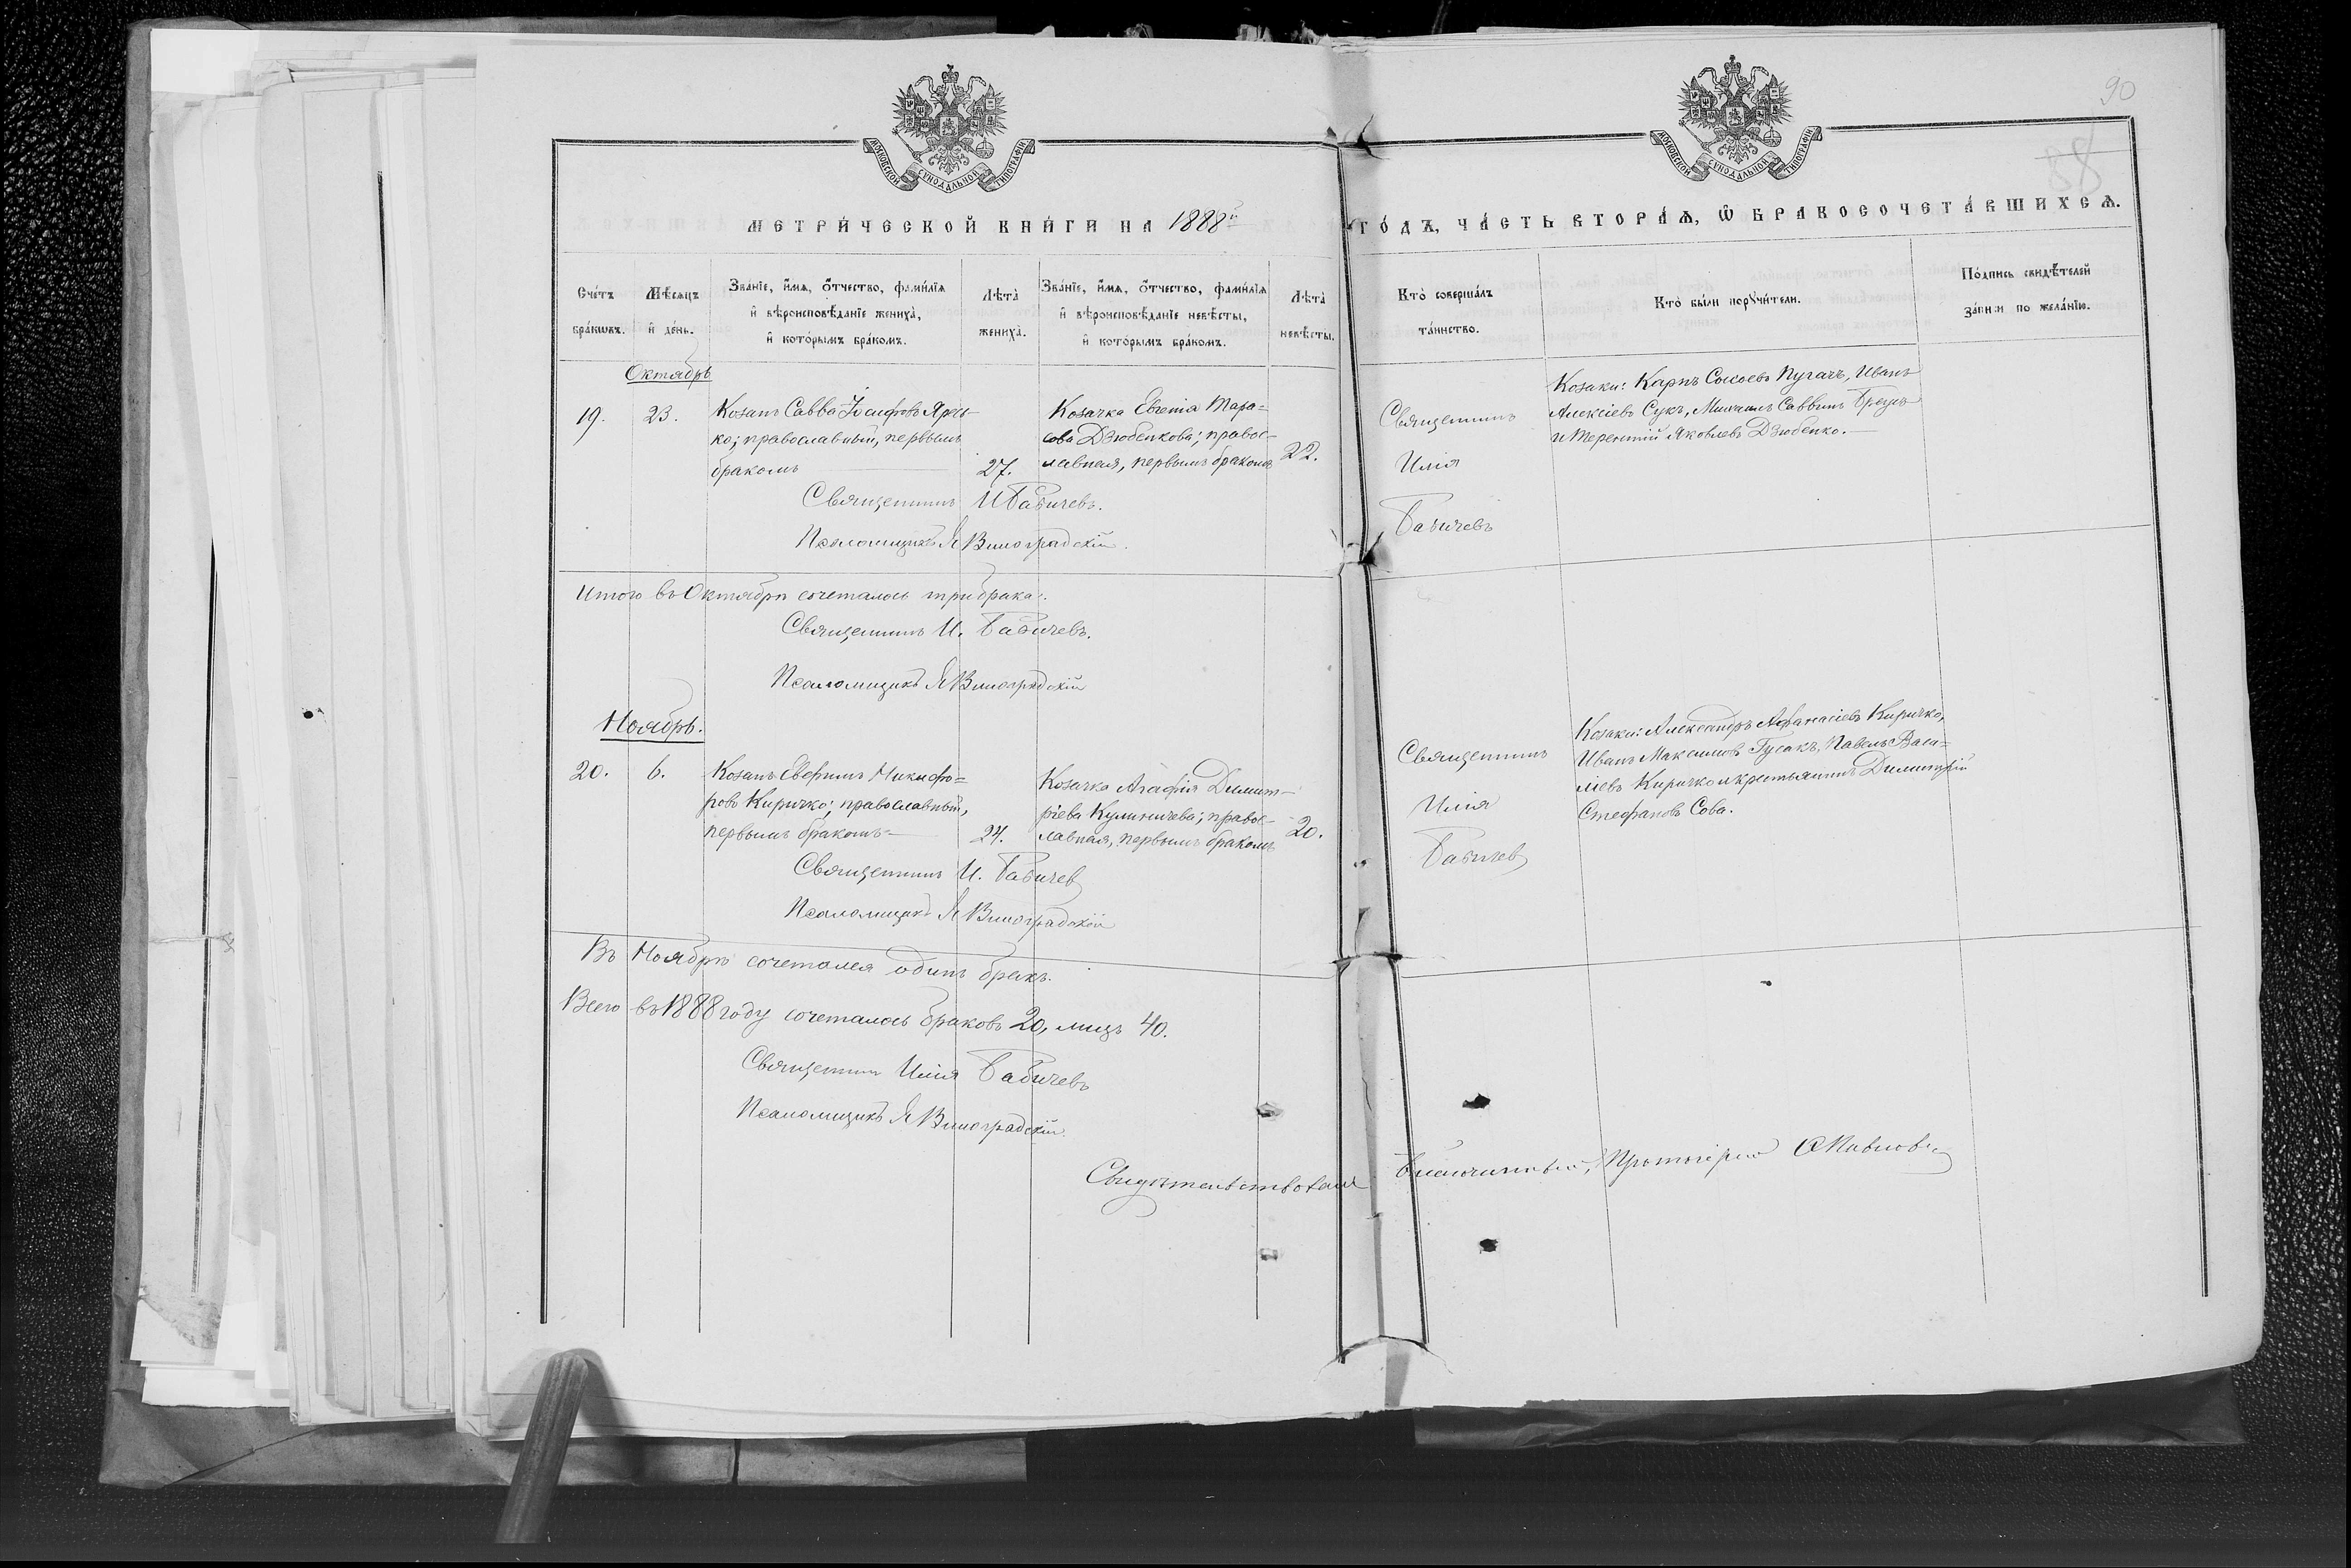 90
88
МОСКОВСКОЙ СѴНОДАЛЬНОЙ ТИПОГРАФІИ
МОСКОВСКОЙ СѴНОДАЛЬНОЙ ТИПОГРАФІИ
МЕТРИ́ЧЕСКОЙ КНИ́ГИ НА 1888й ГО́ДЪ, ЧА́СТЬ ВТОРА́Ѧ, Ѿ БРАКОСОЧЕТА́ВШИХСѦ.
Сче́тъ
бра́кѡвъ.
Мѣ́сяцъ
и҆ де́нь.
Зва́нїе, и҆́мѧ, ѻ҆́тчество, фами́лїѧ
и҆ вѣроисповѣ́данїе жениха̀,
и҆ кото́рымъ бра́комъ.
Лѣта̀
жениха̀.
Зва́нїе, и҆́мѧ, ѻ҆́тчество, фами́лїѧ
и҆ вѣроисповѣ́данїе невѣ́сты,
и҆ кото́рымъ бра́комъ.
Лѣта̀
невѣ́сты.
Кто̀ соверша́лъ
та́инство.
Кто̀ бы́ли порꙋчи́тели.
По́дпись свидѣ́телей
за́писи по жела́нїю.
Октябрь
19.
23.
Козакъ Савва Іосифовъ Ярес-
ко; православный, первымъ
бракомъ
27.
Козачка Евгенія Тара=
сова Дзюбенкова; правос-
лавная, первымъ бракомъ
22.
Священникъ
Илія
Бабичевъ
Козаки: Карпъ Сысоевъ Пугачъ, Иванъ
Алексіевъ Сукъ, Михаилъ Саввинъ Бреусъ
и Терентій Яковлевъ Дзюбенко.
Священникъ И Бабичевъ.
Псаломщикъ Я Виноградскій.
Итого въ Октябрѣ сочеталось три брака.
Священникъ И. Бабичевъ.
Псаломщикъ Я Виноградскій
Ноябрь.
20.
6.
Козакъ Евфимъ Никифо=
ровъ Киричко; православный,
первымъ бракомъ
24.
Козачка Агафія Димит-
ріева Кулиничева; правос-
лавная, первымъ бракомъ
20.
Священникъ
Илія
Бабичевъ
Козаки: Александръ Афанасіевъ Киричко,
Иванъ Максимовъ Гусакъ, Павелъ Васи=
ліевъ Киричко и крестьянинъ Димитрій
Стефановъ Сова.
Священникъ И. Бабичевъ
Псаломщикъ Я Виноградскій
Въ Ноябрѣ сочетался одинъ бракъ.
Всего въ 1888 году сочеталось браковъ 20, лицъ 40.
Священникъ Илія Бабичевъ
Псаломщикъ Я Виноградскій.
Свидѣтельствовалъ Благочинный, Протоіерей